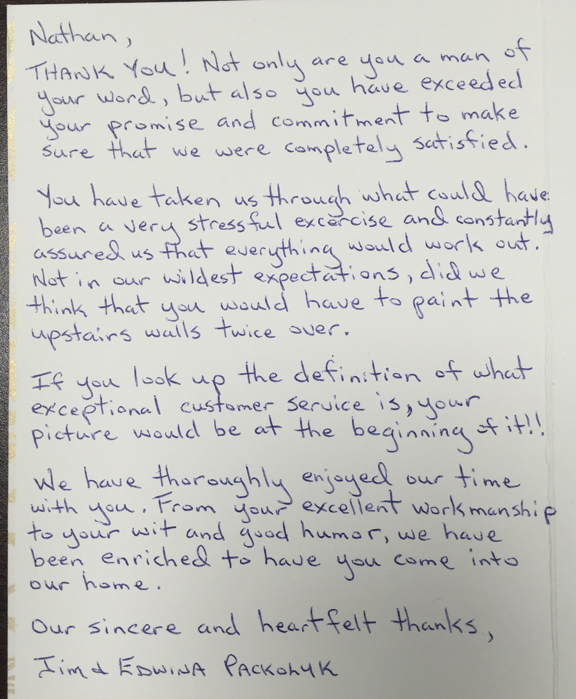 Nathan,
THANK YOU! Not only are you a man of
your word, but also you have exceeded
your promise and commitment to make
sure that we were completely satisfied.
You have taken us through what could have
been a very stressful excercise and constantly
assured us that everything would work out.
Not in our wildest expectations, did we
think that you would have to paint the
upstairs walls twice over.
If you look up the definition of what
exceptional customer service is, your
picture would be at the beginning of it!!
We have thoroughly enjoyed our time
with you. From your excellent workmanship
to your wit and good humor, we have
been enriched to have you come into
our home.
Our sincere and heartfelt thanks,
Jim & EDWINA PACKOLYK